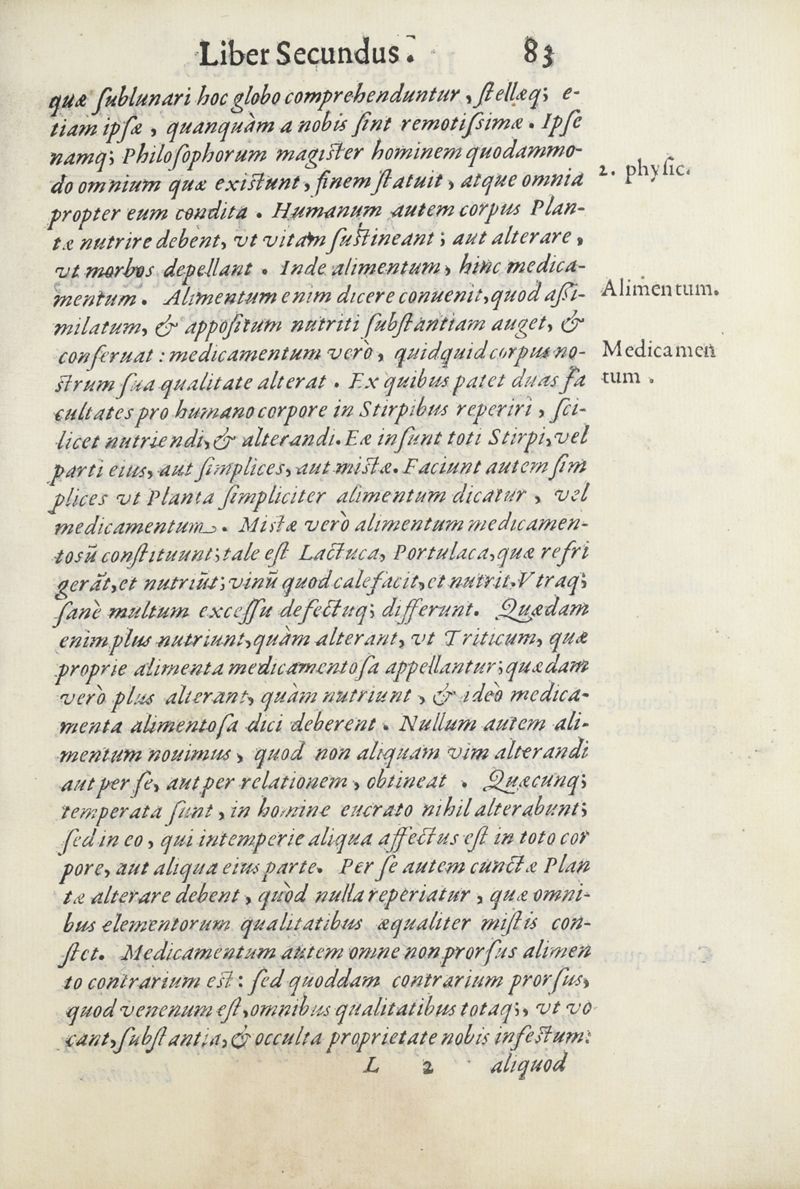 Liber Secundus. 83
quæ ſublunari hoc globo comprehenduntur, ſtellæq; e-
tiam ipſæ, quanquàm a nobis ſint remotiſsimæ. Ipſe
namq; Philoſophorum magister hominem quodammo-
do omnium quæ existunt, finem ſtatuit, atque omnia
2. phyſic.
propter eum condita. Humanum autem corpus Plan-
tæ nutrire debent, vt vitam ſustineant; aut alterare,
vt morbos depellant. Inde alimentum, hinc medica-
mentum. Alimentum enim dicere conuenit, quod aſſi-
Alimentum.
milatum, & appoſitum nutriti ſubſtantiam auget, &
conſeruat: medicamentum verò, quidquid corpus no-
Medicamen
strum ſua qualitate alterat. Ex quibus patet duas fa
tum.
cultates pro humano corpore in Stirpibus reperiri, ſci-
licet nutriendi, & alterandi. Eæ inſunt toti Stirpi, vel
parti eius, aut ſimplices, aut mistæ. Faciunt autem ſim
plices vt Planta ſimpliciter alimentum dicatur, vel
medicamentum. Mistæ verò alimentum medicamen-
tosũ conſtituunt; tale eſt Lactuca, Portulaca, quæ refri
gerãt, et nutriũt; vinũ quod calefacit, et nutrit. Vtraq;
ſanè multum exceſſu defectuq; differunt. Quædam
enim plus nutriunt, quàm alterant, vt Triticum, quæ
proprie alimenta medicamentoſa appellantur; quædam
verò plus alterant, quàm nutriunt, & ideò medica-
menta alimentoſa dici deberent. Nullum autem ali-
mentum nouimus, quod non aliquam vim alterandi
aut per ſe, aut per relationem, obtineat. Quæcunq;
temperata ſunt, in homine eucrato nihil alterabunt;
ſed in eo, qui intemperie aliqua affectus eſt in toto cor
pore, aut aliqua eius parte. Per ſe autem cunctæ Plan
tæ alterare debent, quòd nulla reperiatur, quæ omni-
bus elementorum qualitatibus æqualiter miſtis con-
ſtet. Medicamentum autem omne non prorſus alimen
to contrarium est: ſed quoddam contrarium prorſus,
quod venenum eſt, omnibus qualitatibus totaq;, vt vo
cant, ſubſtantia, & occulta proprietate nobis infestum:
L 2 aliquod